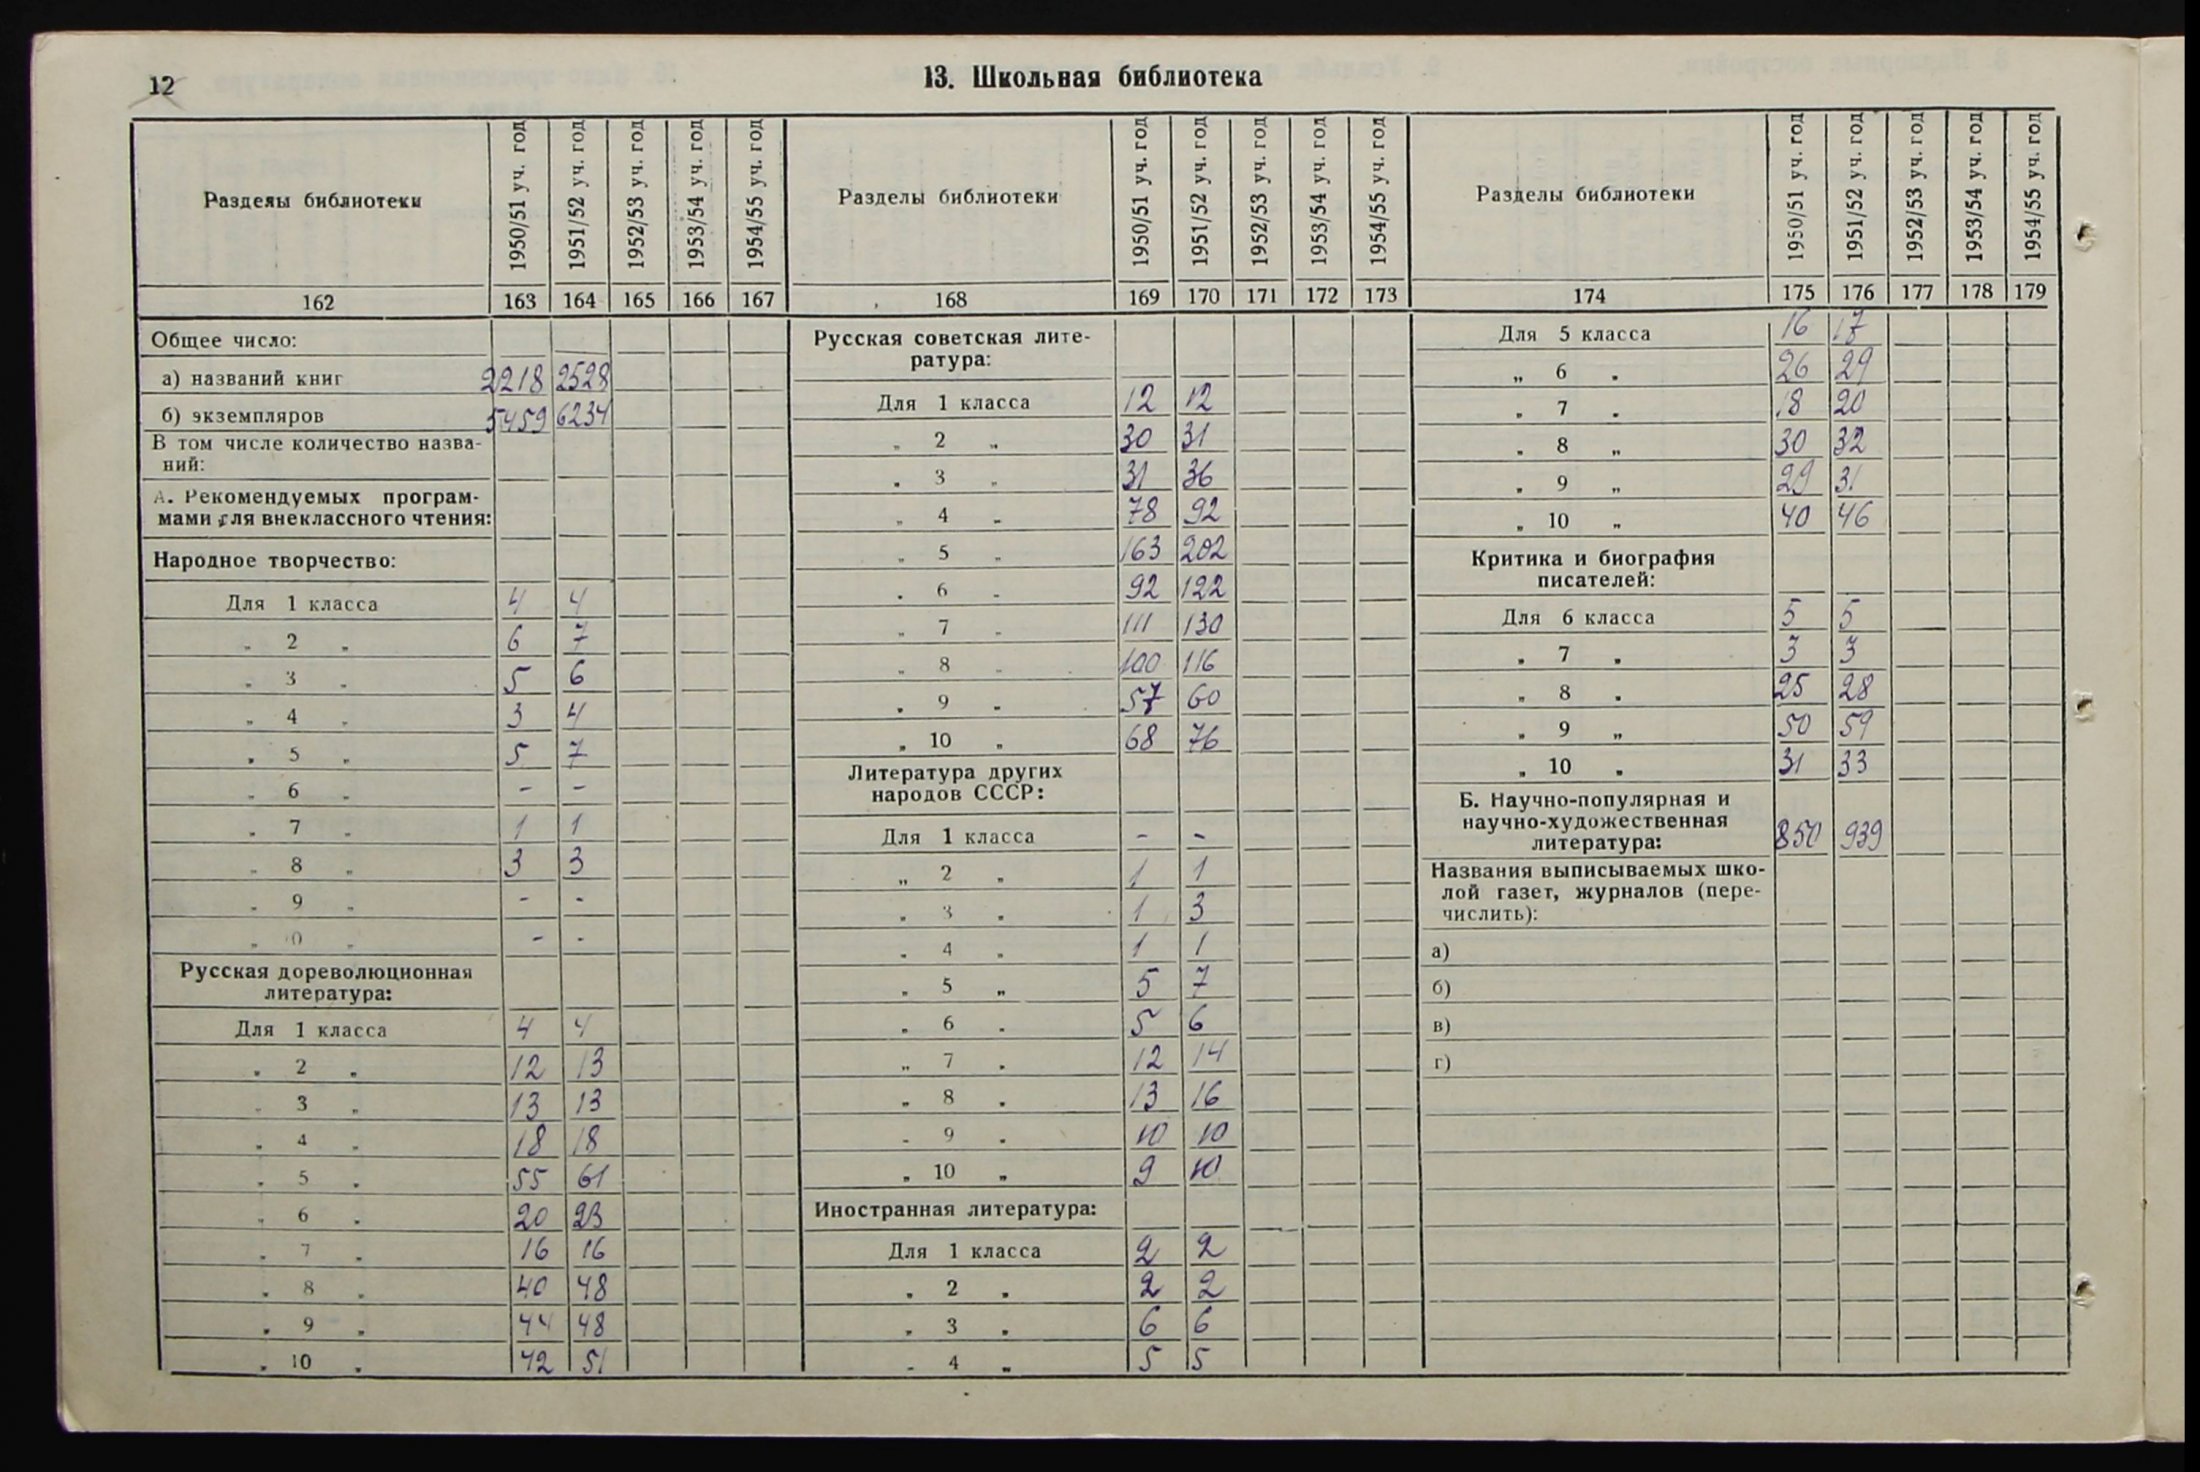 12
13. Школьная библиотека
Разделы библиотеки 1950/51 уч. год 1951/52 уч. год 1952/53 уч. год 1953/54 уч. год 1954/55 уч. год
162 163 164 165 166 167
Общее число:
а) названий книг 2218 2528
б) экземпляров 5459 6234
В том числе количество назва-
ний:
А. Рекомендуемых програм-
мами для внеклассного чтения:
Народное творчество:
Для 1 класса 4 4
„ 2 „ 6 7
„ 3 „ 5 6
„ 4 „ 3 4
„ 5 „ 5 7
„ 6 „ - -
„ 7 „ 1 1
„ 8 „ 3 3
„ 9 „ - -
„ 10 „ - -
Русская дореволюционная
литература:
Для 1 класса 4 4
„ 2 „ 12 13
„ 3 „ 13 13
„ 4 „ 18 18
„ 5 „ 55 61
„ 6 „ 20 23
„ 7 „ 16 16
„ 8 „ 40 48
„ 9 „ 44 48
„ 10 „ 42 51
Разделы библиотеки 1950/51 уч. год 1951/52 уч. год 1952/53 уч. год 1953/54 уч. год 1954/55 уч. год
168 169 170 171 172 173
Русская советская лите-
ратура:
Для 1 класса 12 12
„ 2 „ 30 31
„ 3 „ 31 36
„ 4 „ 78 92
„ 5 „ 163 202
„ 6 „ 92 122
„ 7 „ 111 130
„ 8 „ 100 116
„ 9 „ 57 60
„ 10 „ 68 76
Литература других
народов СССР:
Для 1 класса - -
„ 2 „ 1 1
„ 3 „ 1 3
„ 4 „ 1 1
„ 5 „ 5 7
„ 6 „ 5 6
„ 7 „ 12 14
„ 8 „ 13 16
„ 9 „ 10 10
„ 10 „ 9 10
Иностранная литература:
Для 1 класса 2 2
„ 2 „ 2 2
„ 3 „ 6 6
„ 4 „ 5 5
Разделы библиотеки 1950/51 уч. год 1951/52 уч. год 1952/53 уч. год 1953/54 уч. год 1954/55 уч. год
174 175 176 177 178 179
Для 5 класса 16 17
„ 6 „ 26 29
„ 7 „ 18 20
„ 8 „ 30 32
„ 9 „ 29 31
„ 10 „ 40 46
Критика и биография
писателей:
Для 6 класса 5 5
„ 7 „ 3 3
„ 8 „ 25 28
„ 9 „ 50 59
„ 10 „ 31 33
Б. Научно-популярная и
научно-художественная
литература: 850 939
Названия выписываемых шко-
лой газет, журналов (пере-
числить):
а)
б)
в)
г)